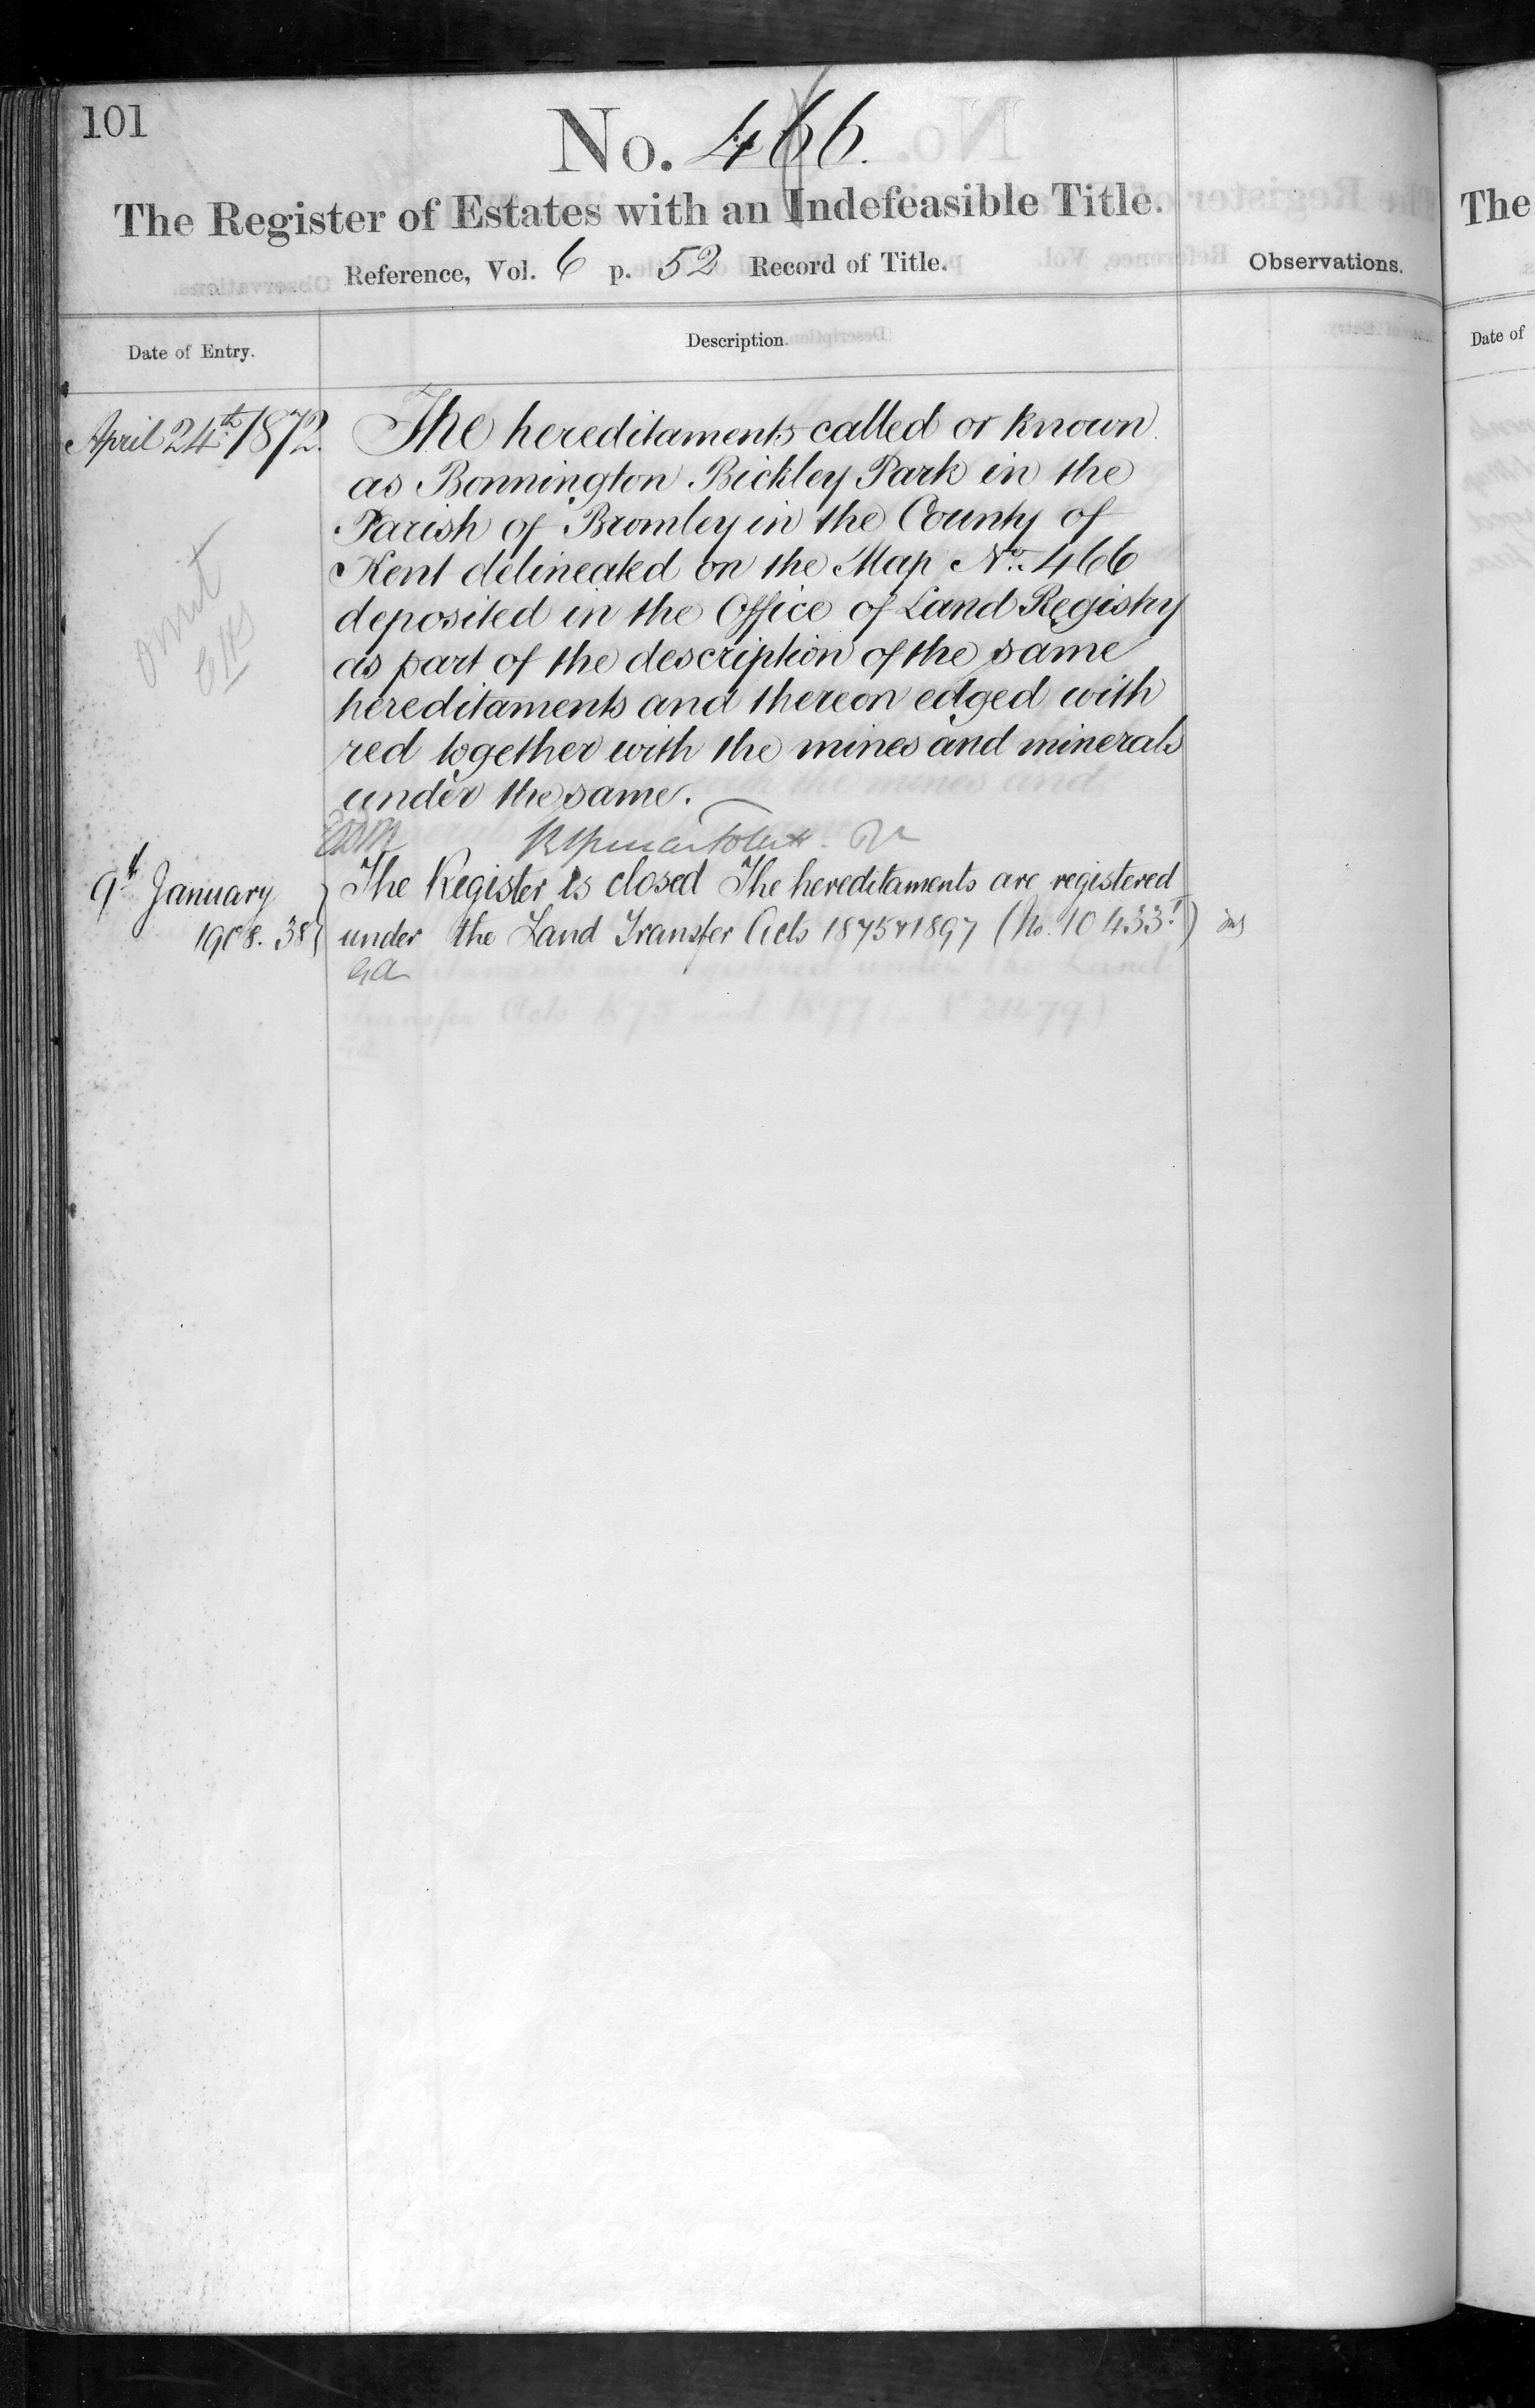 101
No. 466.
The Register of Estates with an Indefeasible Title.
Reference, Vol. 6 p. 52 Record of Title.
Observations.
Date of Entry.
Description.
April 24th 1872.
The hereditaments called or known
as Bonnington Bickley Park in the
Parish of Bromley in the County of
Kent delineated on the Map No. 466
deposited in the Office of Land Registry
as part of the description of the same
hereditaments and thereon edged with
red together with the mines and minerals
under the same.
omit
9th January
1908. 38
The Register is closed The hereditaments are registered
under the Land Transfer Acts 1875 & 1897 (No. 10433)
The
Date of